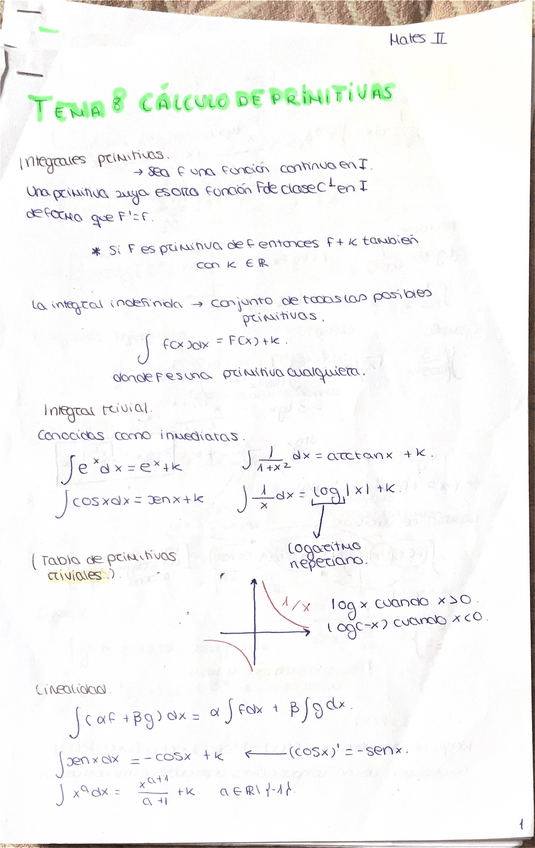 Mates II
TEMA 8 CÁLCULO DE PRIMITIVAS
Integrales primitivas.
→ Sea f una función continua en I.
Una primitiva suya es otra función F de clase C¹ en I
de forma que F' = f.
* Si F es primitiva de f entonces F + K también
con K ∈ ℝ
La integral indefinida → conjunto de todas las posibles
primitivas.
∫ f(x)dx = F(x) + K.
donde F es una primitiva cualquiera.
Integral trivial.
Conocidas como inmediatas.
∫ e^x dx = e^x + K ∫ 1/(1+x²) dx = arctan x + K.
∫ cosxdx = senx + K ∫ 1/x dx = log |x| + K.
Logaritmo
neperiano.
(Tabla de primitivas
triviales.)
1/x
log x cuando x>0.
log(-x) cuando x<0.
Linealidad.
∫(αf + βg) dx = α∫fdx + β∫g dx.
∫senx dx = -cosx + K ← (cosx)' = -senx.
∫ x^a dx = x^(a+1)/(a+1) + K a ∈ ℝ\{-1}.
1